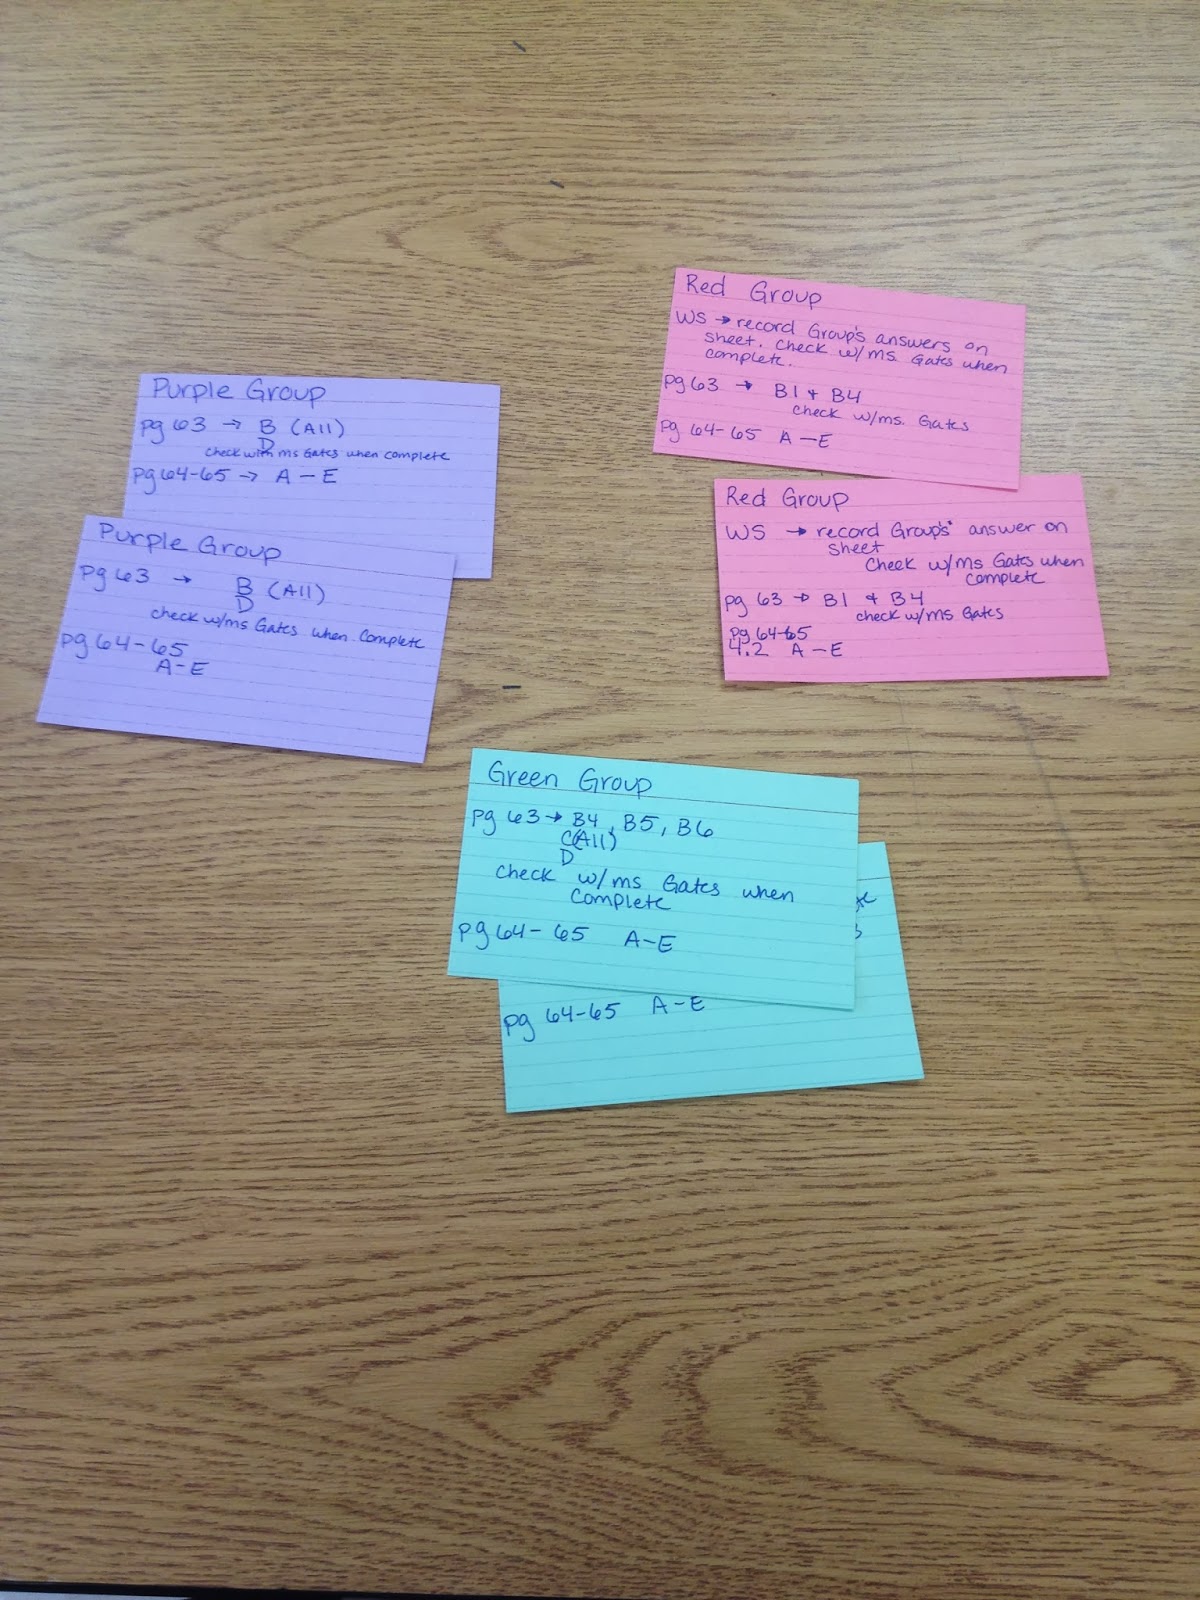 Purple Group
pg 63 → B (All)
D
check with ms Gates when complete
pg 64-65 → A - E
Purple Group
pg 63 → B (All)
D
check w/ms Gates when complete
pg 64-65
A-E
Red Group
WS → record Group's answers on
sheet. check w/ms Gates when
complete.
pg 63 → B1 + B4
check w/ms. Gates
pg 64-65 A-E
Red Group
WS → record Group's answer on
sheet
Check w/ms Gates when
complete
pg 63 → B1 + B4
check w/ms Gates
pg 64-65
4.2 A-E
Green Group
pg 63 → B4, B5, B6
C(All)
D
check w/ms Gates when
complete
pg 64-65 A-E
pg 64-65 A-E